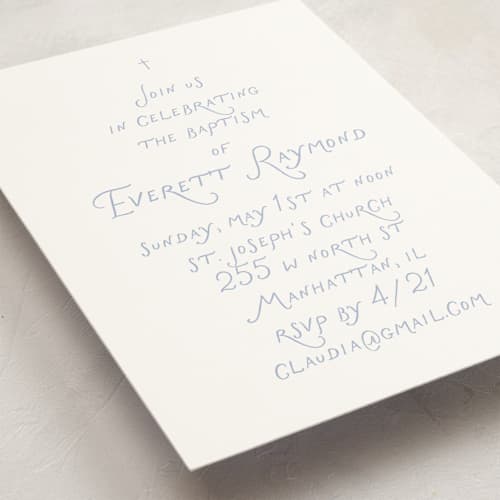 Join us
in celebrating
the baptism
of
Everett Raymond
Sunday, May 1st at noon
St. Joseph's Church
255 W North St
Manhattan, IL
RSVP by 4/21
claudia@gmail.com